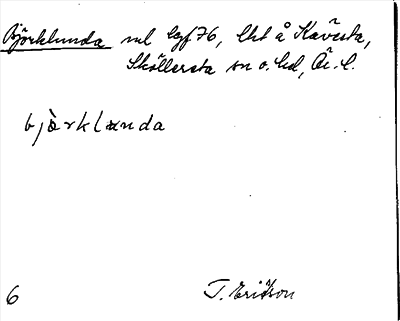 Björklunda ml lgf 76, lht å Kävesta,
Sköllersta sn o. hd, Ör. l.
bjö̀rklunda
6 T. Ericson